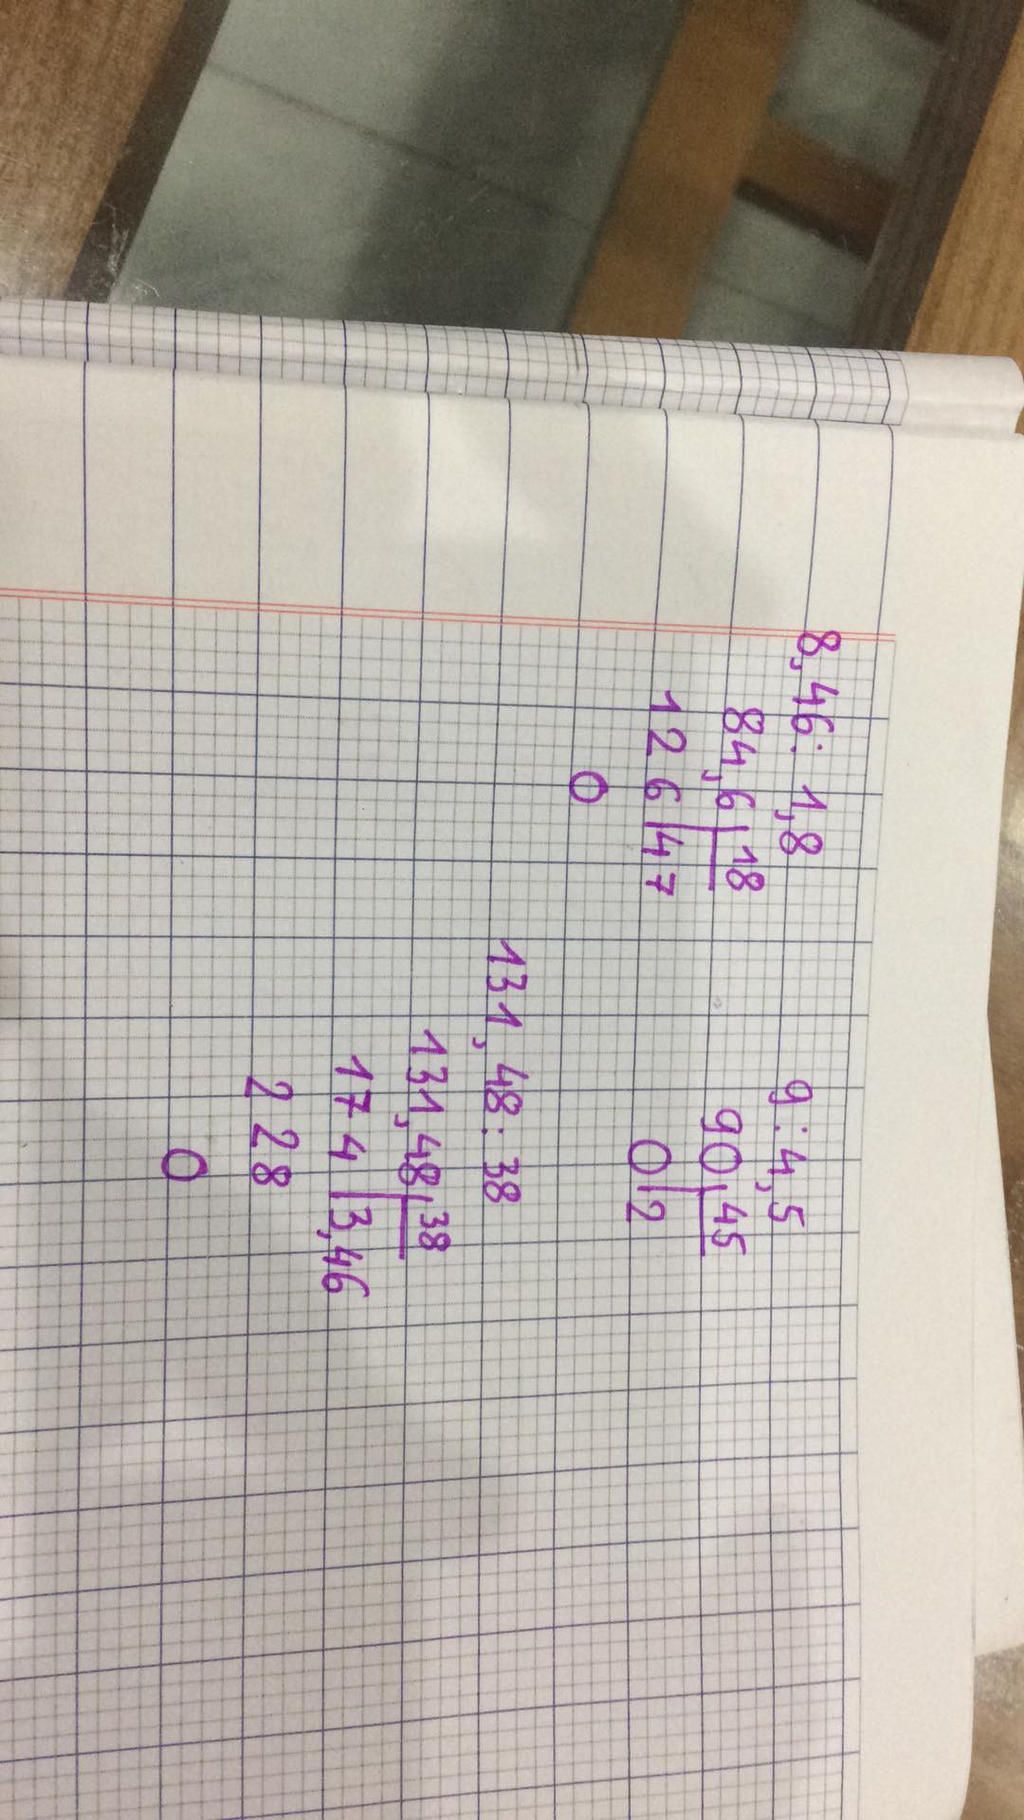 8,46: 1,8
84,6 18
126 47
0
9:4,5
90 45
0 2
131,48:38
131,48 38
174 3,46
228
0